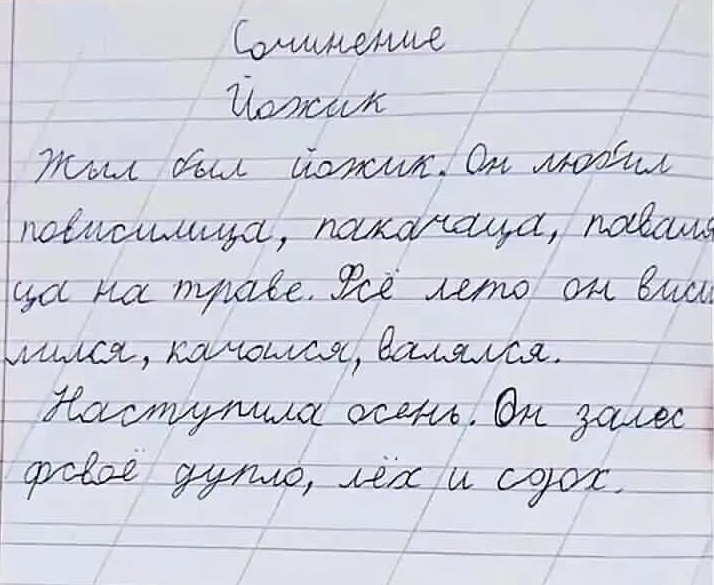 Сочинение
Йожик
Жыл был йожик. Он любил
повисилица, пакачаца, паваля
ца на траве. Фсё лето он виси
лился, качался, валялся.
Наступила осень. Он залес
фсваё дупло, лёх и сдох.